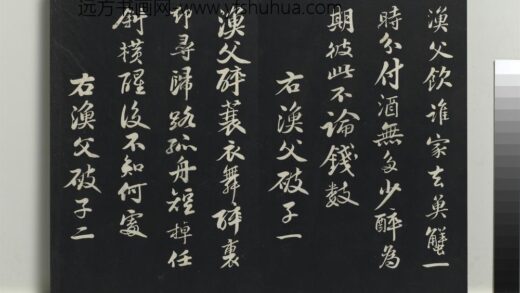 远方书画网 www.yfshuhua.com
漁父飲誰家去魚蟹一
時分付酒無多少醉為
期彼此不論錢數
右漁父破子一
漁父醉蓑衣舞醉裏
却尋歸路孤舟短掉任
斜橫醒後不知何處
右漁父破子二